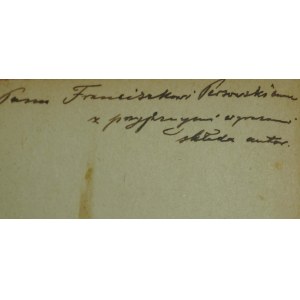 Panu Franciszkowi Persowskiemu
z przyjaznymi wyrazami
składa autor.